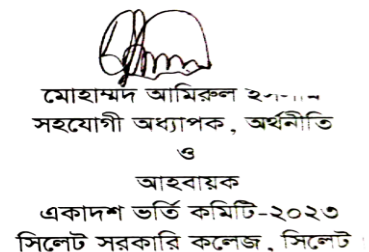 মোহাম্মদ আমিরুল
সহযোগী অধ্যাপক, অর্থনীতি
ও
আহবায়ক
একাদশ ভর্তি কমিটি-২০২৩
সিলেট সরকারি কলেজ, সিলেট